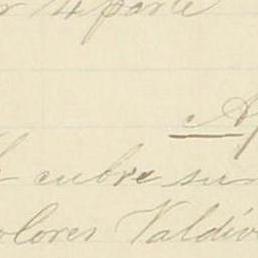 r 4 parte
Ap
cubre su
olores Valdiv